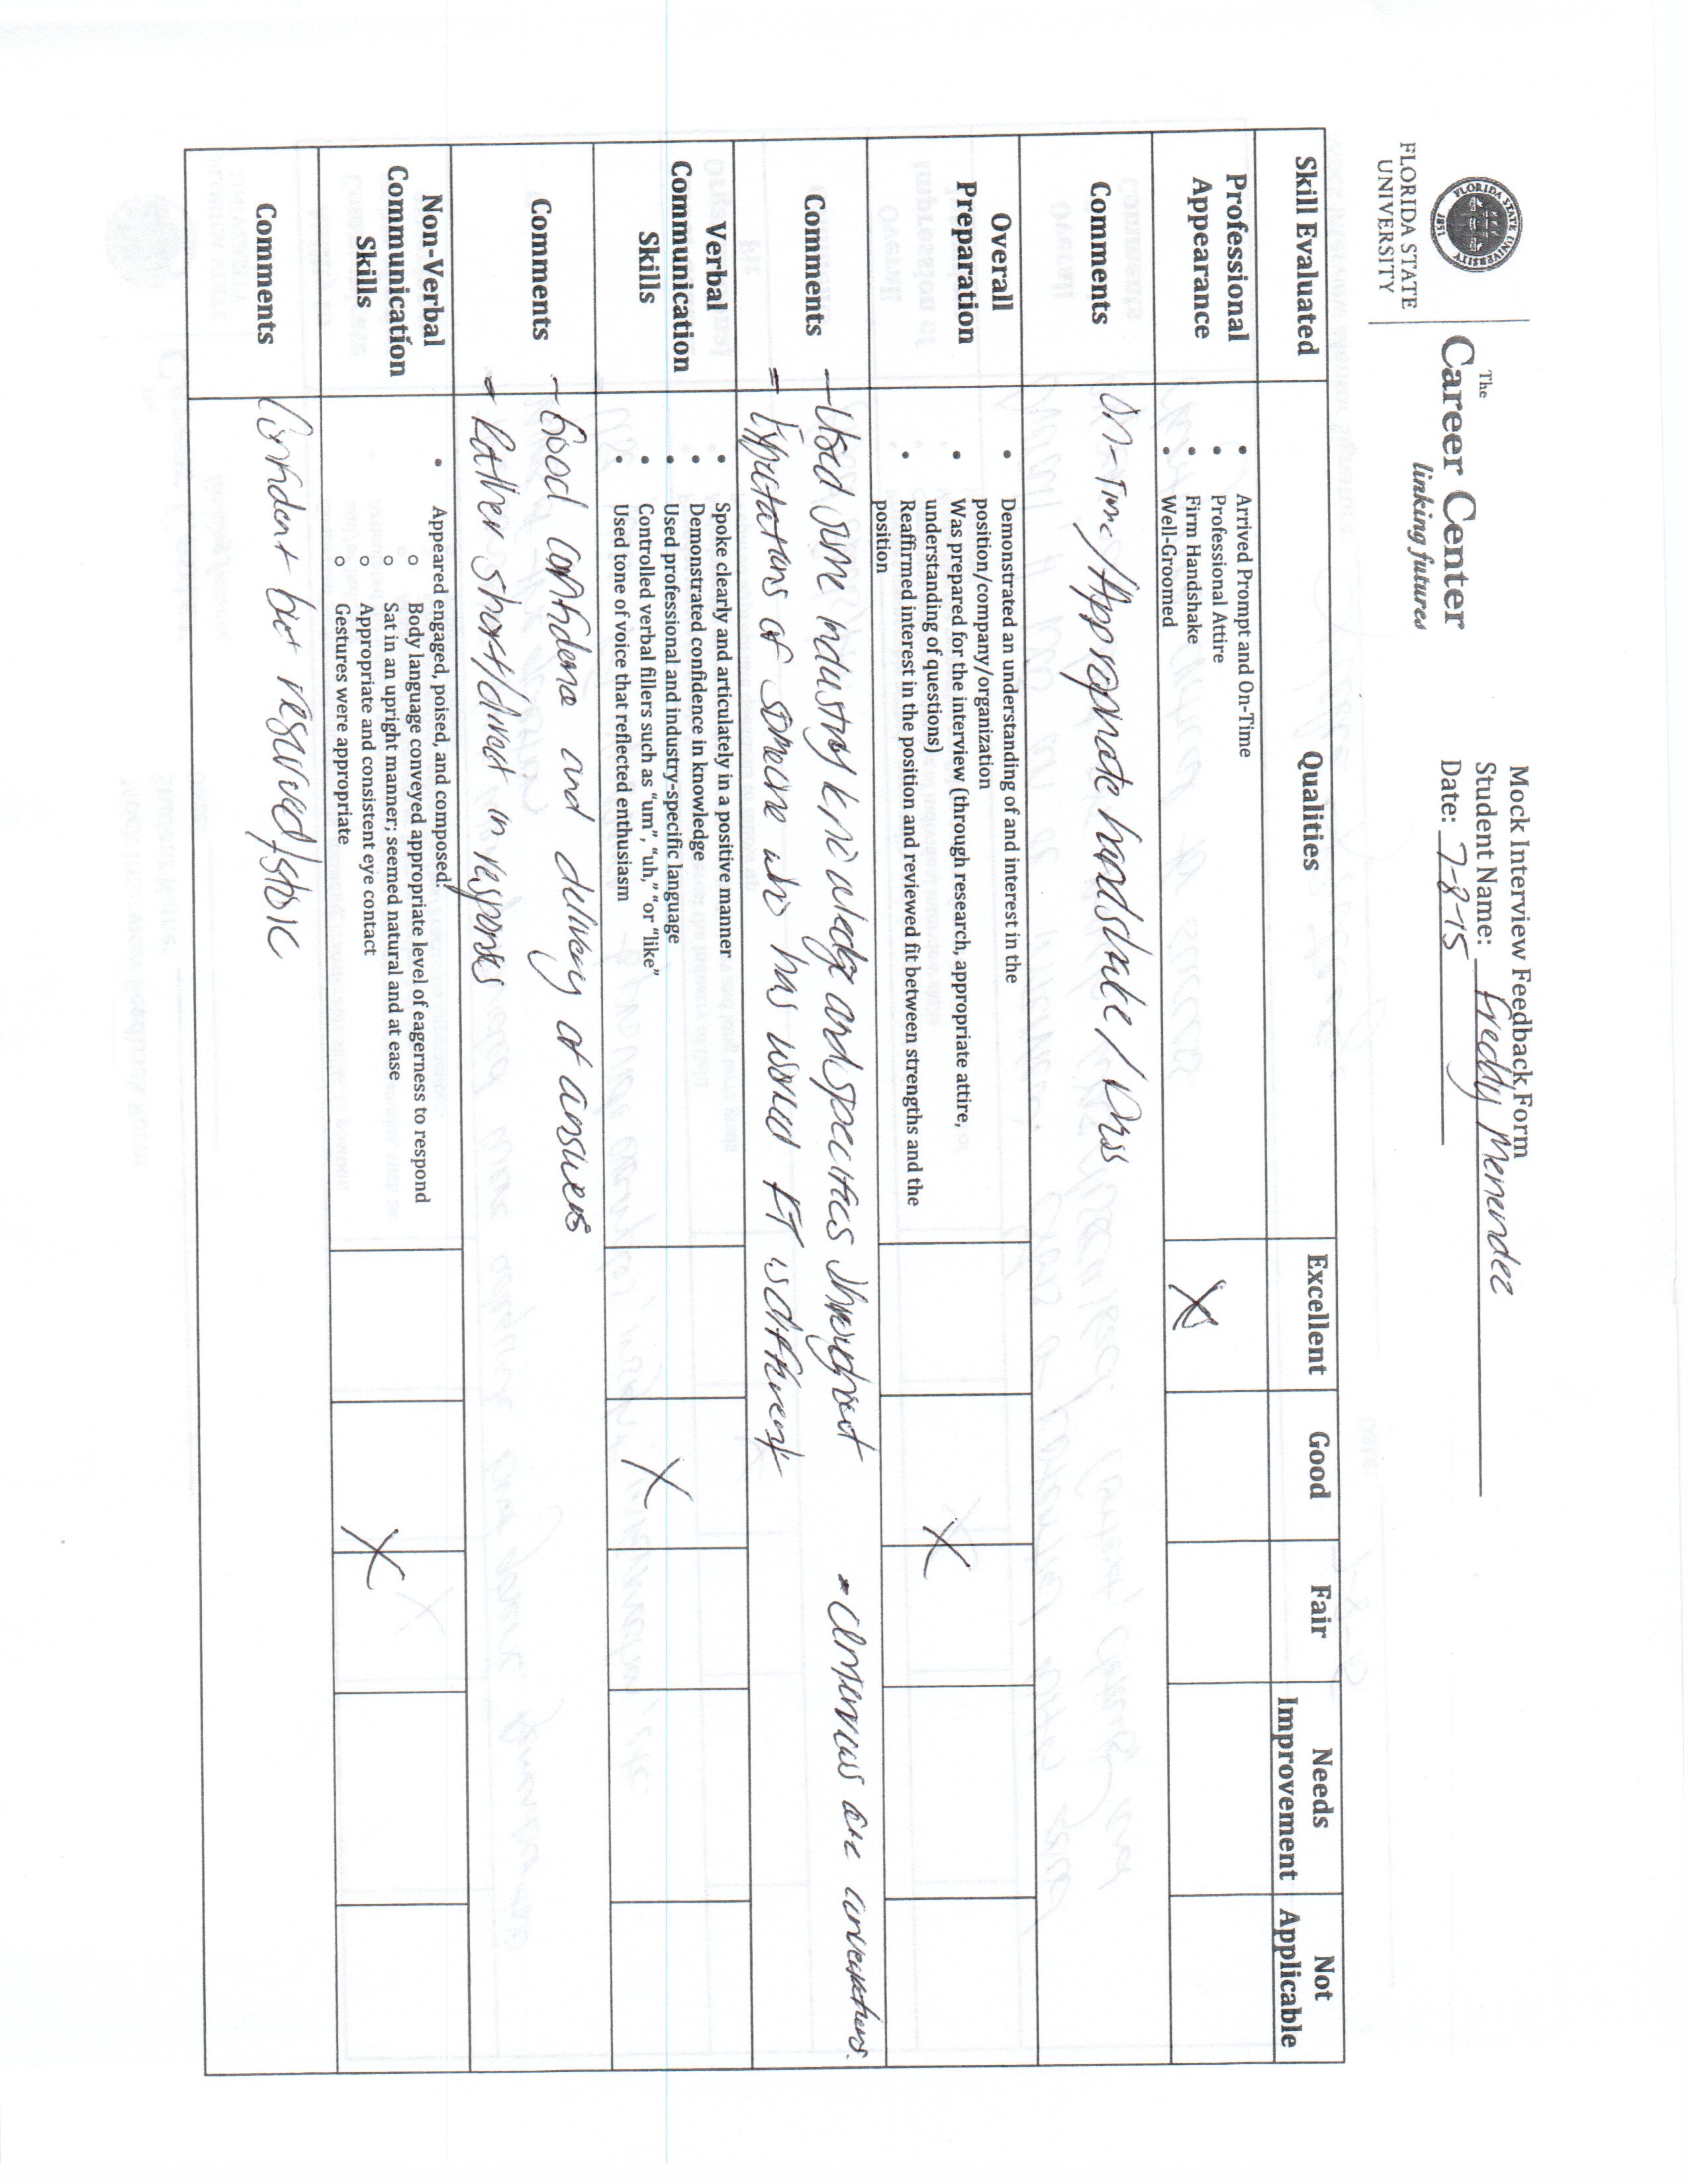 FLORIDA STATE UNIVERSITY 1851
FLORIDA STATE
UNIVERSITY
The
Career Center
linking futures
Mock Interview Feedback Form
Student Name: Freddy Menendez
Date: 7-8-15
Skill Evaluated Qualities Excellent Good Fair Needs Improvement Not Applicable
Professional
Appearance
• Arrived Prompt and On-Time
• Professional Attire
• Firm Handshake
• Well-Groomed
X
Comments
On-Time/Appropriate handshake/Dress
Overall
Preparation
• Demonstrated an understanding of and interest in the
position/company/organization
• Was prepared for the interview (through research, appropriate attire,
understanding of questions)
• Reaffirmed interest in the position and reviewed fit between strengths and the
position
X
Comments
- Used some industry knowledge and specifics throughout
- are conversations.
- Expectations of someone who has worked FT is different
Verbal
Communication
Skills
• Spoke clearly and articulately in a positive manner
• Demonstrated confidence in knowledge
• Used professional and industry-specific language
• Controlled verbal fillers such as "um", "uh," or "like"
• Used tone of voice that reflected enthusiasm
X
Comments
- Good confidence and delivery of answers
- Rather short/direct in responses
Non-Verbal
Communication
Skills
• Appeared engaged, poised, and composed.
o Body language conveyed appropriate level of eagerness to respond
o Sat in an upright manner; seemed natural and at ease
o Appropriate and consistent eye contact
o Gestures were appropriate
X
Comments
Confident but reserved/stoic